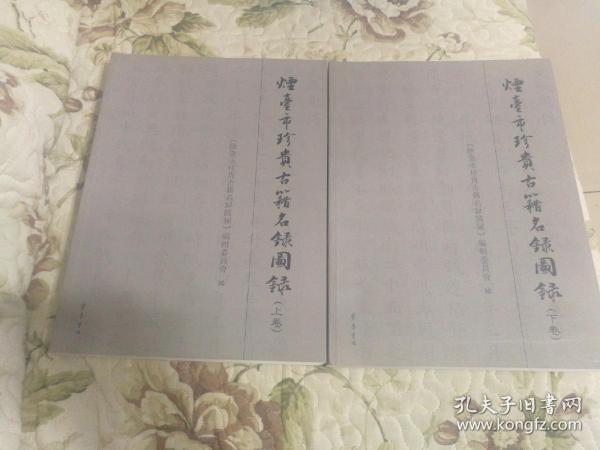 煙臺市珍貴古籍名錄圖錄(上卷)
《煙臺市珍貴古籍名錄圖錄》編輯委員會 編
齊魯書社
煙臺市珍貴古籍名錄圖錄(下卷)
《煙臺市珍貴古籍名錄圖錄》編輯委員會 編
齊魯書社
孔夫子旧书网
kongfz.com